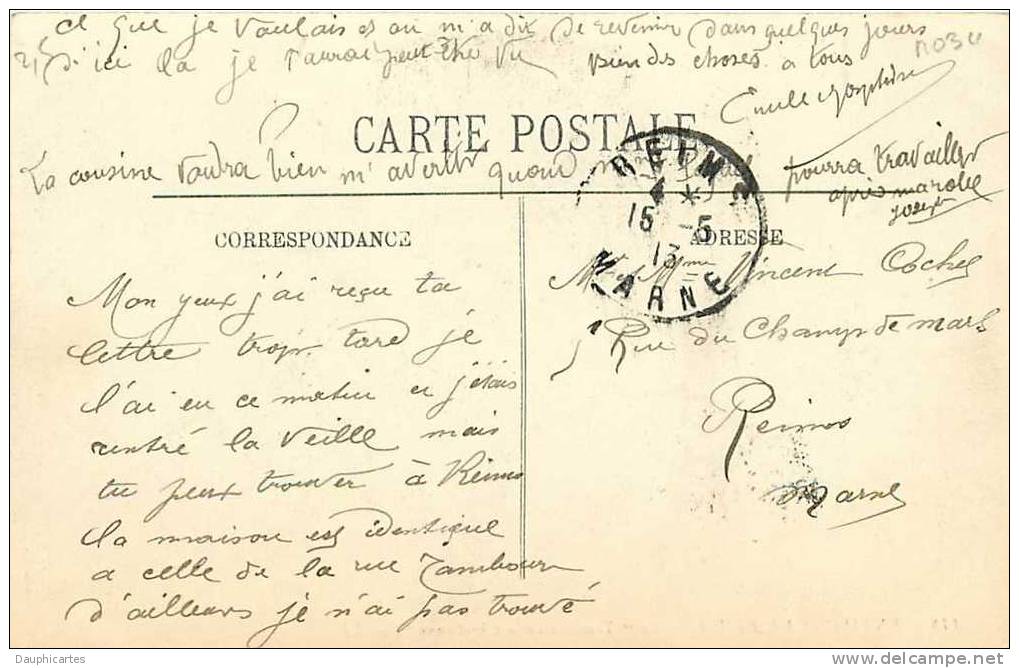 ce que je voulais et on m'a dit de revenir dans quelques jours
d'ici là je t'aurai peut être vu bien des choses à tous
Emile
CARTE POSTALE
La cousine voudra bien m'avertir quand pourra travailler
après
Joseph
REIMS
15 -5
13
MARNE
CORRESPONDANCE
ADRESSE
Mon yeux j'ai reçu ta
lettre trop tard je
l'ai eu ce matin et j'étais
rentré la veille mais
tu peux trouver à Reims
la maison est identique
a celle de la rue Tambour
d'ailleurs je n'ai pas trouvé
Mr Mme Vincent Cochez
Rue du Champ de mars
Reims
Marne
Dauphicartes
www.delcampe.net